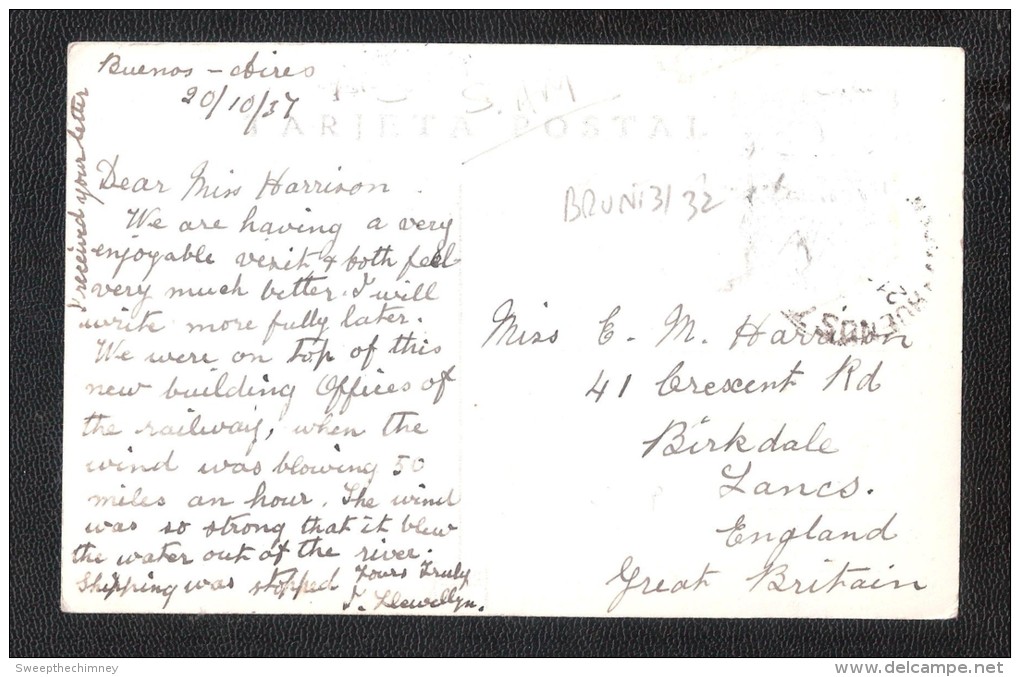 Buenos - Aires
20/10/37
TARJETA POSTAL
Dear Miss Harrison.
We are having a very
enjoyable visit & both feel
very much better. I will
write more fully later.
We were on top of this
new building Offices of
the railway, when the
wind was blowing 50
miles an hour. The wind
was so strong that it blew
the water out of the river.
Shipping was stopped
Yours Truly
J. Llewellyn.
I received your letter
BRUNI 31 32
Miss E. M. Harrison
41 Crescent Rd
Birkdale
Lancs.
England
Great Britain
BUENOS
Sweepthechimney
www.delcampe.net